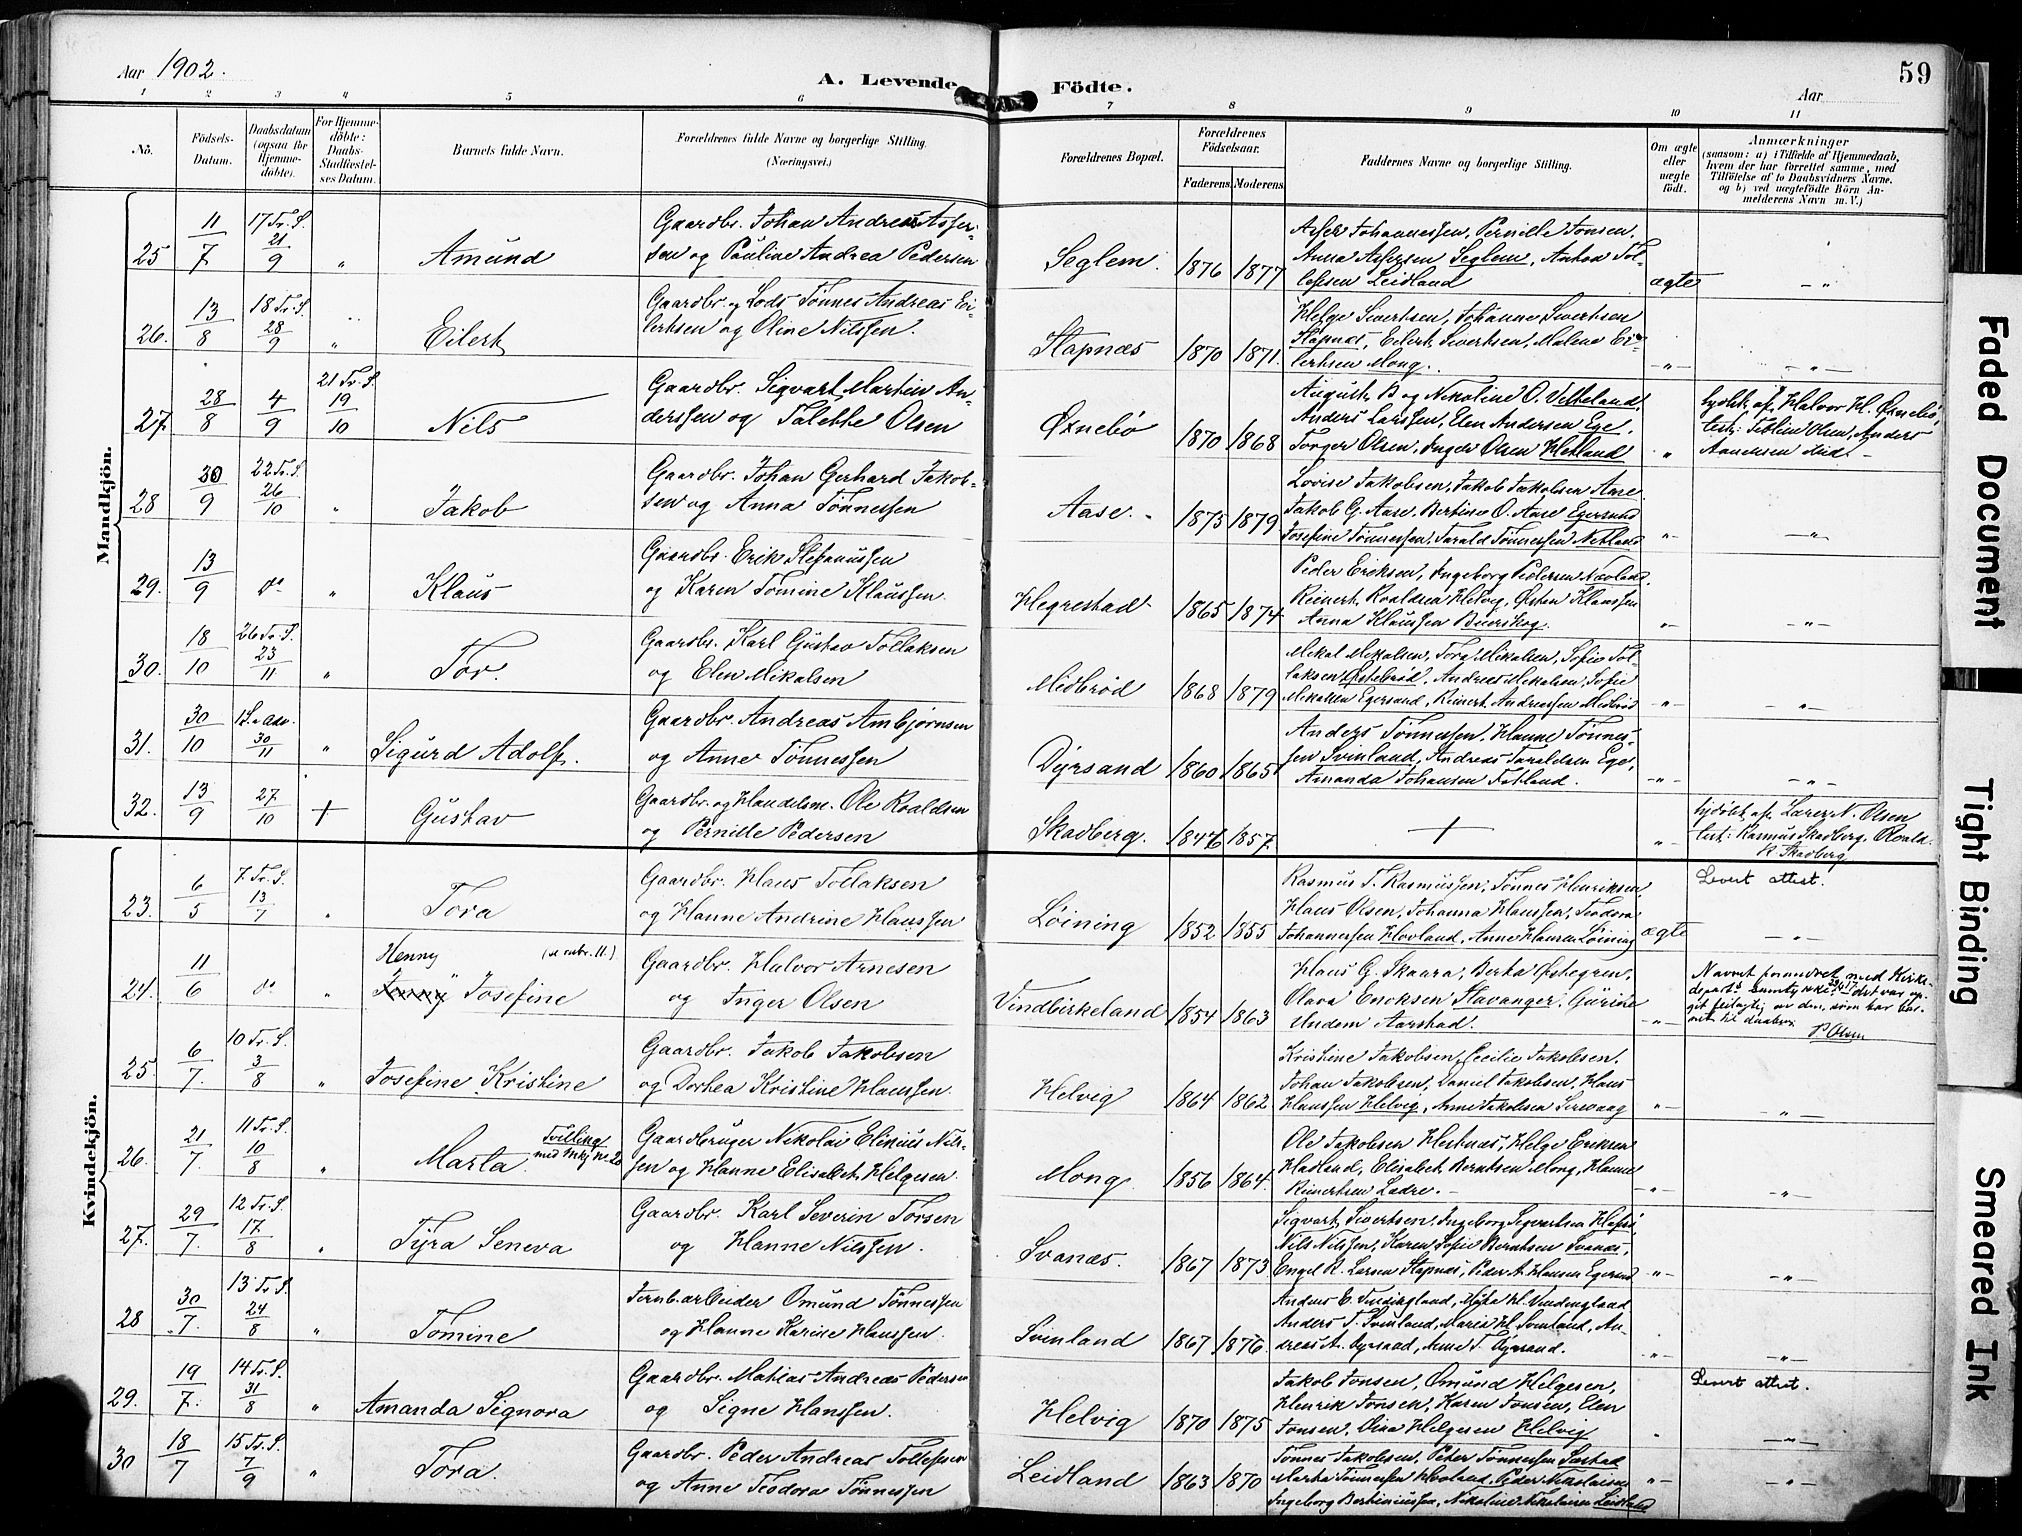 Aar 1902.
A. Levende Födte.
59
Aar
1 2 3 4 5 6 7 8 9 10 11
No.
Födsels-Datum.
Daabsdatum (ogsaa for Hjemmedöbte).
For Hjemmedöbte: Daabs-Stadfæstelses Datum.
Barnets fulde Navn.
Forældrenes fulde Navne og borgerlige Stilling. (Næringsvei.)
Forældrenes Bopæl.
Forældrenes Födselsaar.
Faderens Moderens
Faddernes Navne og borgerlige Stilling.
Om ægte eller uægte födt.
Anmærkninger
(saasom: a) i Tilfælde af Hjemmedaab,
hvem der har forrettet samme, med
Tilföielse af to Daabsvidners Navne,
og b) ved uægtefödte Börn An-
melderens Navn m. V.)
Mandkjön.
25 11/7 17 Tr. S. 21/9 " Amund
Gaardbr. Johan Andreas Asser-
sen og Pauline Andrea Pedersen
Seglem. 1876 1877
Asser Johannessen, Pernille Jonsen,
Anna Assersen Seglem, Anton Tol-
lefsen Leidland
ægte - " -
26. 13/8 18 Tr. S. 28/9 " Eilert
Gaardbr. og Lods Tönnes Andreas Ei-
lertsen og Oline Nilssen.
Stapnæs 1870 1871.
Helge Sivertsen, Johanne Sivertsen
Stapnæs, Eilert Sivertsen, Malene Ei-
lertsen Mong.
- " - - " -
27. 28/8 4/9 21 Tr. S. 19/10 Nils
Gaardbr. Sigvart Martin An-
derssen og Talette Olsen
Øxnebö 1870 1868
August B og Nikoline O. Vetteland,
Anders Larssen, Elen Andersen Ege,
Torger Olsen, Inger Olsen Hetland
"
hjdöbt af Halvor H. Øxnebö,
test: Teblin Olsen, Anders
28 30/9 22 Tr. S. 26/10 " Jakob
Gaardbr. Johan Gerhard Jakob-
sen og Anna Tönnessen
Aase. 1875 1879
Lovise Jakobsen, Jakob Jakobsen Aase,
Jakob G. Aase, Bertine O. Aase Egersund
Josefine Tönnessen, Tarald Tönnessen Netland
- " - - " -
29. 13/9 do " Klaus
Gaardbr. Erik Stefanussen
og Karen Tomine Klaussen
Hegrestad 1865 1874
Peder Eriksen, Ingeborg Pedersen Navland,
Reinert Roaldsen Helvig, Østen Klaussen
Anna Klaussen Buerskog.
- " - - " -
30. 18/10 26 Tr. S. 23/11 " Tor.
Gaardbr. Karl Gustav Tollaksen
og Elen Mikalsen
Midbröd 1868 1879
Mikal Mikalsen, Tora Mikalsen, Sofie Tol-
laksen Østebröd, Andreas Mikalsen, Sofie
Mikalsen Egersund, Reinert Andreassen Midbröd
- " - - " -
31. 30/10 1 S. i Adv. 30/11 " Sigurd Adolf.
Gaardbr. Andreas Ambjørnsen
og Anne Tönnessen
Dyrsand 1860 1865
Anders Tönnessen, Hanne Tönnes-
sen Svinland, Andreas Taraldsen Ege,
Amanda Johansen Fotland.
- " - - " -
32. 13/9 27/10 + Gustav
Gaardbr. og Handelsm. Ole Roaldsen
og Pernille Pedersen
Skadberg. 1847 1857.
+
- " -
hjdöbt af Lærer N. Olsen
test: Rasmus Skadberg, Roald
R. Skadberg
Kvindekjön.
23. 6/5 7. Tr. S. 13/7 " Tora
Gaardbr. Hans Tollaksen
og Hanne Andrine Hanssen
Löining 1852 1855
Rasmus T. Rasmussen, Tönnes Henriksen,
Hans Olsen, Johanna Hanssen, Teodora
Johannessen Hovland, Anne Hansen Löining
ægte
Levert attest.
- " -
24. 11/6 do "
Henny
Jenny Josefine
Gaardbr. Halvor Arnesen
og Inger Olsen
Vindbirkeland 1854 1863
Hans G. Skaara, Berta Østegren,
Olava Eriksen Stavanger, Gurine
Undem Aarstad.
- " -
Navnet forandret med Kirke-
depart.s samtykke
P Olsen
25. 6/7 10 Tr. S. 3/8 " Josefine Kristine
Gaardbr. Jakob Jakobsen
og Dorthea Kristine Hanssen.
Helvig 1864 1862
Kristine Jakobsen, Cecilie Jakobsen,
Johan Jakobsen, Daniel Jakobsen, Hans
Hanssen Helvig, Anne Jakobsen Sirevaag
- " - - " -
26. 21/7. 11 Tr. S. 10/8 " Marta. Tvilling med Mkj no 20
Gaardbruger Nikolai Elinius Nils-
sen og Hanne Elisabet Helgesen.
Mong 1856 1864.
Ole Jakobsen Hestnæs, Helge Eriksen
Hadland, Elisabet Berntsen Mong, Hanne
Reinertsen Ladre. -
- " - - " -
27. 29/7. 12 Tr. S. 17/8 " Tyra Seneva
Gaardbr. Karl Severin Torsen
og Hanne Nilssen.
Svanæs. 1867 1873
Sigvart Sivertsen, Ingeborg Sigvartsen
Nils Nilssen, Karen Sofie Berntsen Svanæs,
Engel R. Larsen Stapnæs, Peder A. Hansen Egersund
- " - - " -
28 30/7. 13 Tr. S. 24/8 " Tomine
Jernb.arbeider Omund Tönnessen
og Hanne Karine Hanssen.
Svinland 1867 1876.
Anders T. Svinland, Maria H. Svinland, An-
dreas A. Dyrsand, Anne T. Dyrsand.
" - " -
29. 19/7. 14 Tr. S. 31/8 " Amanda Signora
Gaardbr. Matias Andreas Pedersen
og Signe Hanssen.
Helvig 1870 1875
Jakob Jonsen, Omund Helgesen,
Henrik Jonsen, Karen Jonsen, Elen
Jonsen, Oina Helgesen Helvig
Levert attest.
- " -
30 18/7 15 Tr. S. 7/9 " Tora.
Gaardbr. Peder Andreas Tollefsen
og Anne Teodora Tönnessen
Leidland 1863 1870
Tönnes Jakobsen, Peter Tönnessen
Marta Tönnessen Hovland, Peder Nikolaisen
Ingeborg Bertiniussen, Nikoline Nikolaisen Leidland
- " - - " -
Faded Document
Tight Binding
Smeared Ink